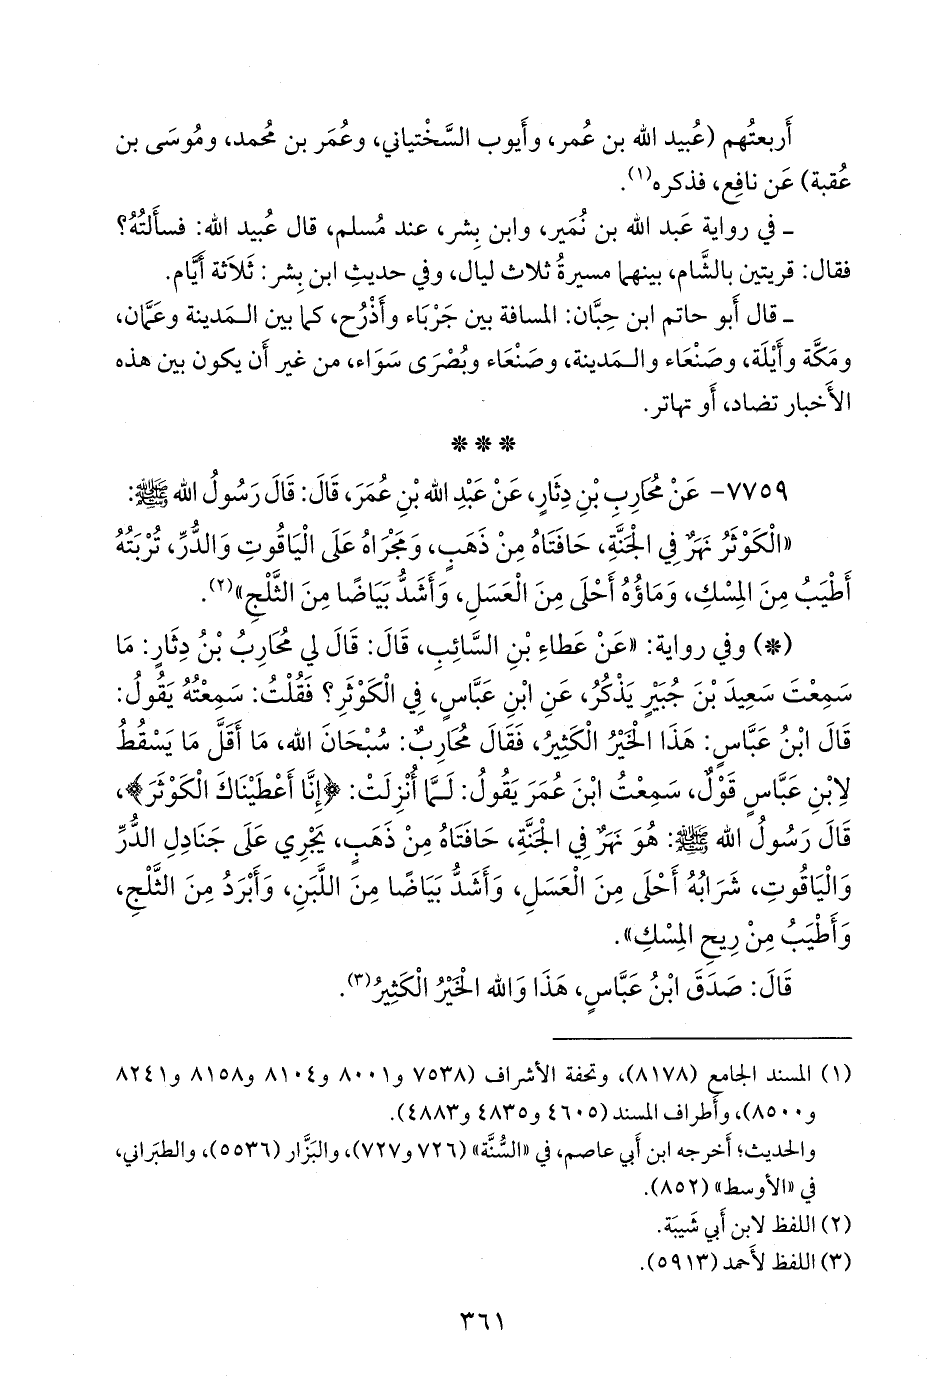 أَربعتُهم (عُبيد الله بن عُمر، وأَيوب السَّخْتياني، وعُمَر بن مُحمد، ومُوسَى بن
عُقبة) عَن نافِع، فذكره(١).
ـ في رواية عَبد الله بن نُمَير، وابن بِشر، عند مُسلم، قال عُبيد الله: فسأَلتُهُ؟
فقال: قريتين بالشَّام، بينهما مسيرةُ ثلاث ليال، وفي حديثِ ابن بِشر: ثَلَاثَة أَيَّام.
ـ قال أَبو حاتم ابن حِبَّان: المسافة بين جَرْبَاء وأَذْرُح، كما بين المَدينة وعَمَّان،
ومَكَّة وأَيْلَة، وصَنْعَاء والمَدينة، وصَنْعَاء وبُصْرَى سَوَاء، من غير أَن يكون بين هذه
الأَخبار تضاد، أَو تهاتر.
***
٧٧٥٩- عَنْ مُحَارِبِ بْنِ دِثَارٍ، عَنْ عَبْدِ الله بْنِ عُمَرَ، قَالَ: قَالَ رَسُولُ الله ﷺ:
«الْكَوْثَرُ نَهَرٌ فِي الْجَنَّةِ، حَافَتَاهُ مِنْ ذَهَبٍ، وَمَجْرَاهُ عَلَى الْيَاقُوتِ وَالدُّرِّ، تُرْبَتُهُ
أَطْيَبُ مِنَ المِسْكِ، وَمَاؤُهُ أَحْلَى مِنَ الْعَسَلِ، وَأَشَدُّ بَيَاضًا مِنَ الثَّلْجِ»(٢).
(*) وفي رواية: «عَنْ عَطَاءِ بْنِ السَّائِبِ، قَالَ: قَالَ لِي مُحَارِبُ بْنُ دِثَارٍ: مَا
سَمِعْتَ سَعِيدَ بْنَ جُبَيْرٍ يَذْكُرُ، عَنِ ابْنِ عَبَّاسٍ، فِي الْكَوْثَرِ؟ فَقُلْتُ: سَمِعْتُهُ يَقُولُ:
قَالَ ابْنُ عَبَّاسٍ: هَذَا الْخَيْرُ الْكَثِيرُ، فَقَالَ مُحَارِبٌ: سُبْحَانَ الله، مَا أَقَلَّ مَا يَسْقُطُ
لِابْنِ عَبَّاسٍ قَوْلٌ، سَمِعْتُ ابْنَ عُمَرَ يَقُولُ: لَمَّا أُنْزِلَتْ: ﴿إِنَّا أَعْطَيْنَاكَ الْكَوْثَرَ﴾،
قَالَ رَسُولُ الله ﷺ: هُوَ نَهَرٌ فِي الْجَنَّةِ، حَافَتَاهُ مِنْ ذَهَبٍ، يَجْرِي عَلَى جَنَادِلِ الدُّرِّ
وَالْيَاقُوتِ، شَرَابُهُ أَحْلَى مِنَ الْعَسَلِ، وَأَشَدُّ بَيَاضًا مِنَ اللَّبَنِ، وَأَبْرَدُ مِنَ الثَّلْجِ،
وَأَطْيَبُ مِنْ رِيحِ المِسْكِ».
قَالَ: صَدَقَ ابْنُ عَبَّاسٍ، هَذَا وَالله الْخَيْرُ الْكَثِيرُ(٣).
(١) المسند الجامع (٨١٧٨)، وتحفة الأشراف (٧٥٣٨ و٨٠٠١ و٨١٠٤ و٨١٥٨ و٨٢٤١
و٨٥٠٠)، وأطراف المسند (٤٦٠٥ و٤٨٣٥ و٤٨٨٣).
والحديث؛ أخرجه ابن أبي عاصم، في «السُّنَّة» (٧٢٦ و٧٢٧)، والبَزَّار (٥٥٣٦)، والطبَراني،
في «الأوسط» (٨٥٢).
(٢) اللفظ لابن أَبي شَيبَة.
(٣) اللفظ لأَحمد (٥٩١٣).
٣٦١